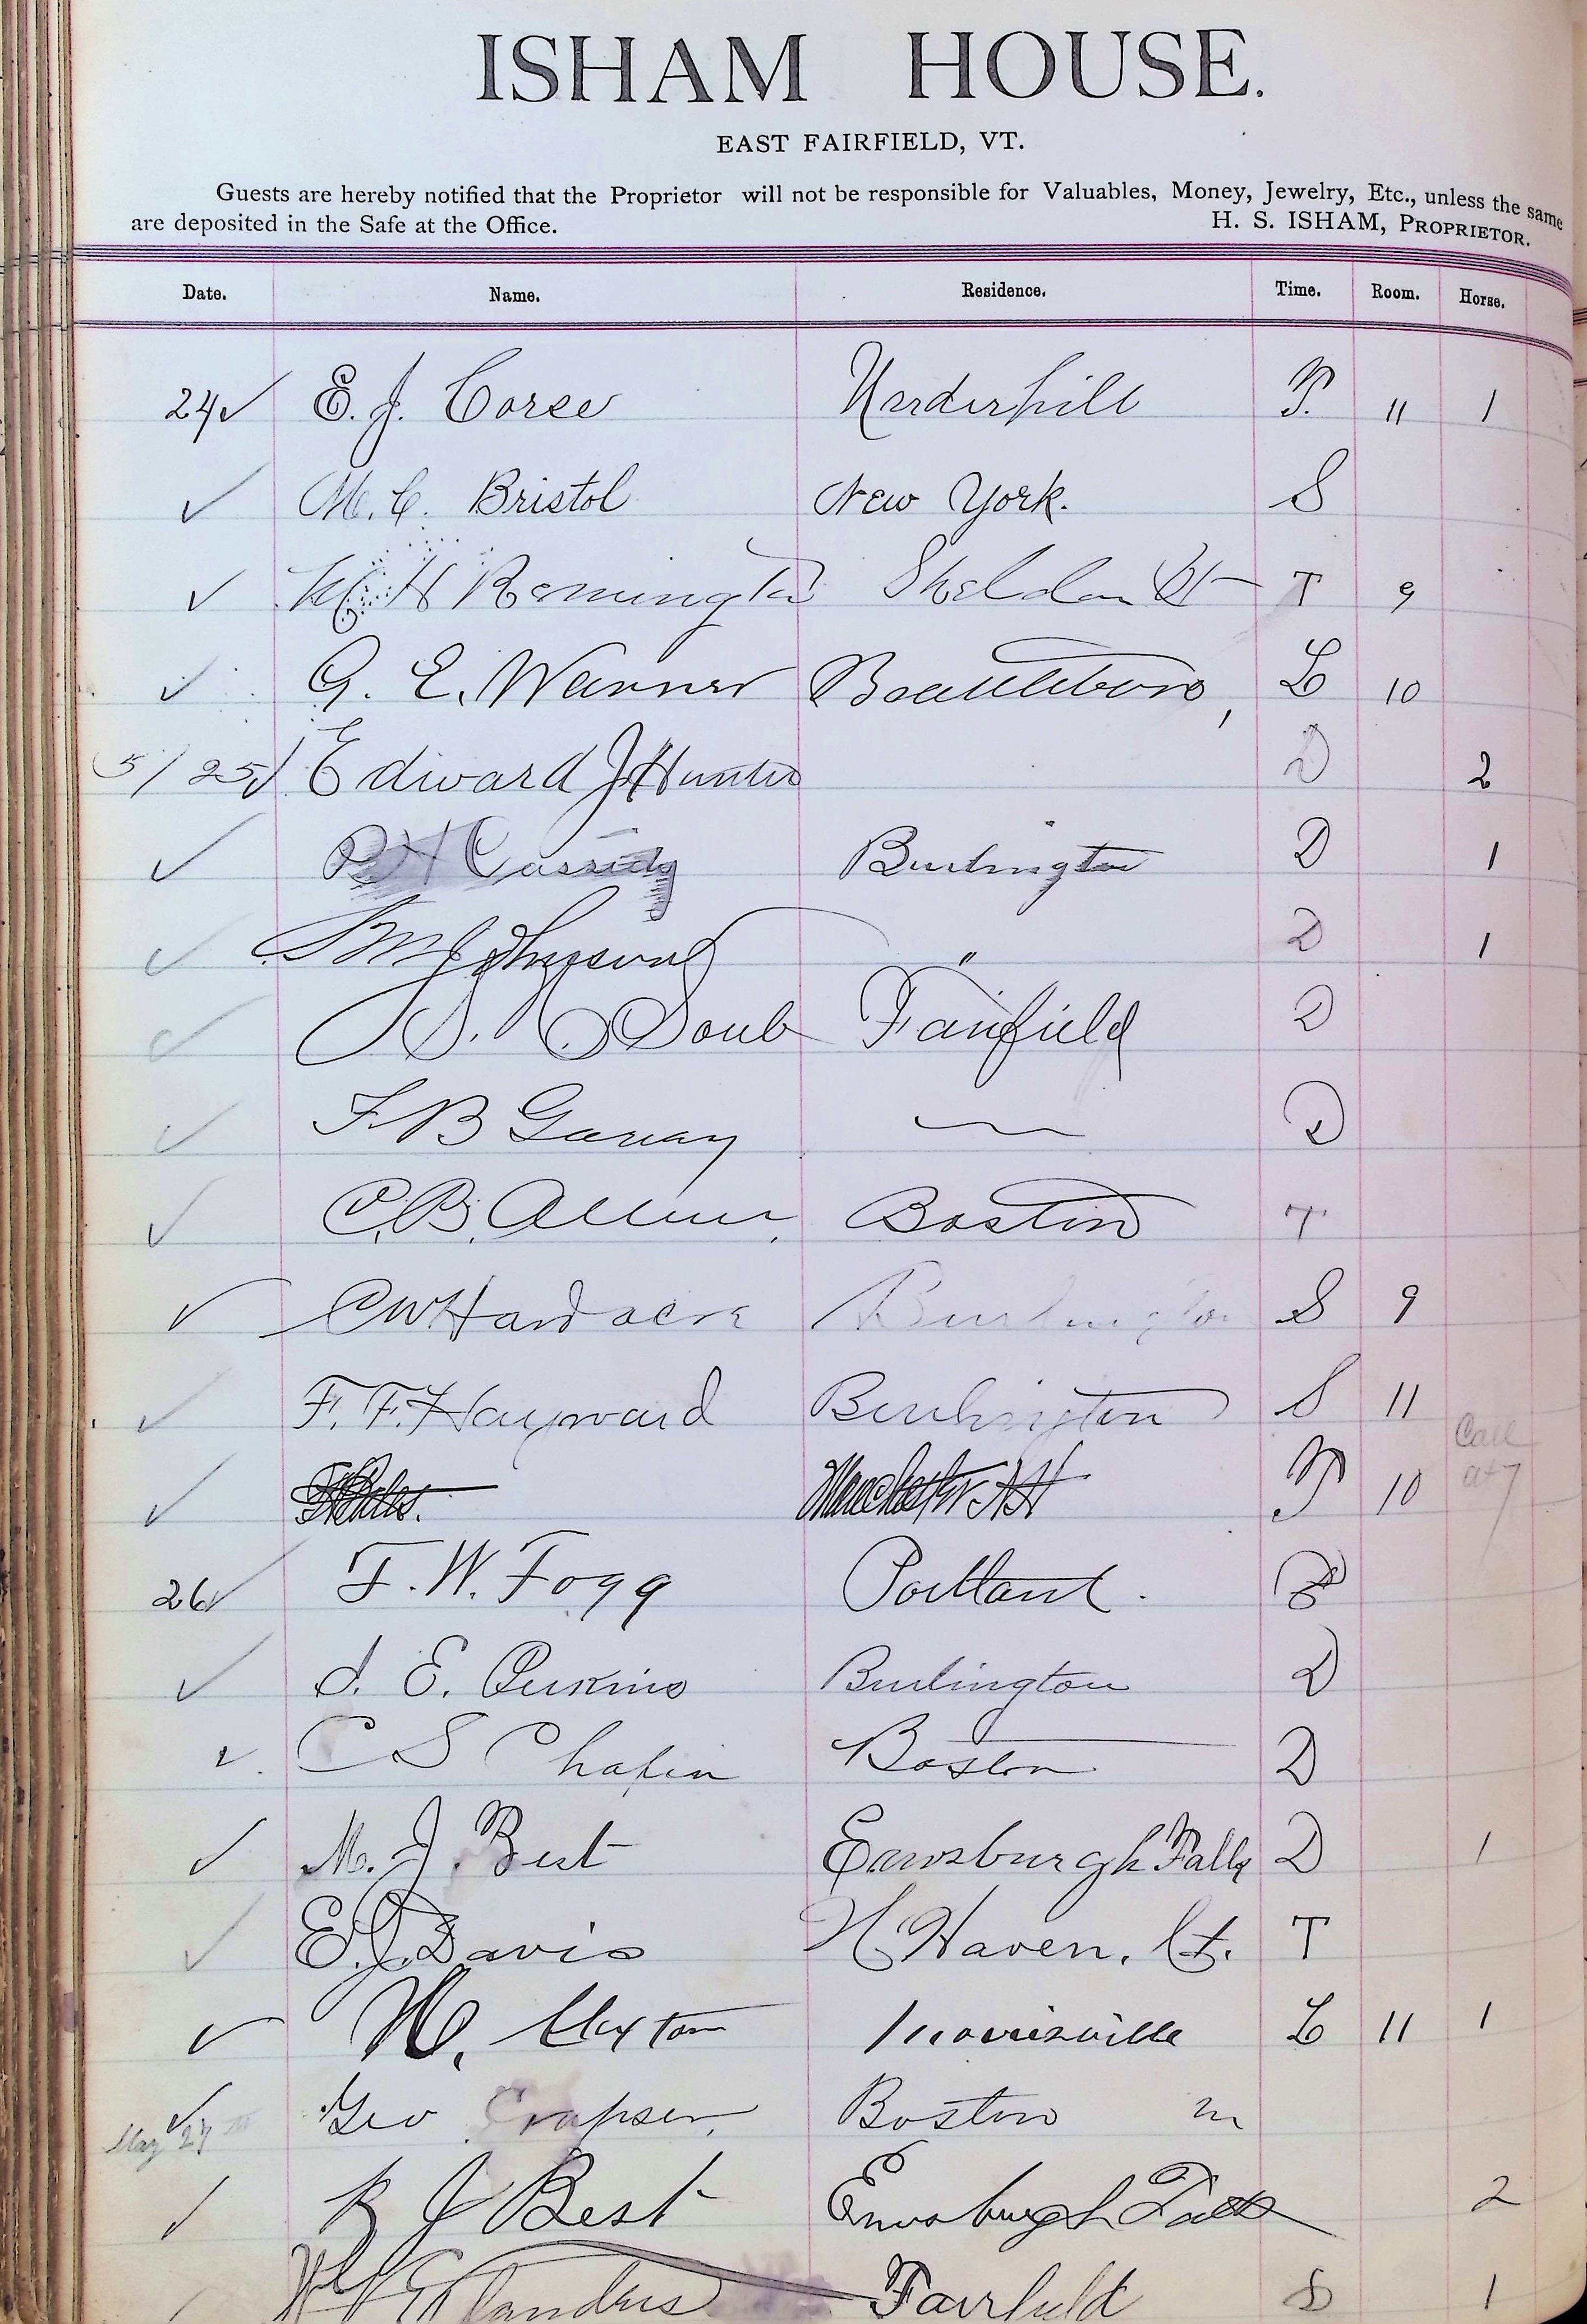 ISHAM HOUSE.
EAST FAIRFIELD, VT.
Guests are hereby notified that the Proprietor will not be responsible for Valuables, Money, Jewelry, Etc., unless the same
are deposited in the Safe at the Office. H. S. ISHAM, PROPRIETOR.
Date. Name. Residence. Time. Room. Horse.
24 ✓ E. J. Corse Underhill T. 11 1
✓ M. C. Bristol New York. S
✓ H Remington Sheldon Vt T 9
✓ G. E. Warner Brattleboro, L 10
5/25 ✓ Edward J Hunter D 2
✓ P H Cassidy Burlington D 1
✓ B M Johnson " D 1
✓ Soule Fairfield D
✓ F B D
✓ C. B. Allen. Boston T
✓ C W Hardacre Burlington S 9
✓ F. F. Hayward Burlington S 11
✓ Manchester N H T 10 Call at 7
26 ✓ F. W. Fogg Portland.
✓ J. E. Perkins Burlington D
✓ C S Chafin Boston D
✓ M. J. Best Enosburgh Falls D 1
✓ E. J. Davis N. Haven, Ct. T
✓ Morrisville L 11 1
✓ Geo Crapser, Boston m
May 27th
✓ R J Best Enosburgh Falls 2
Flanders Fairfield S 1